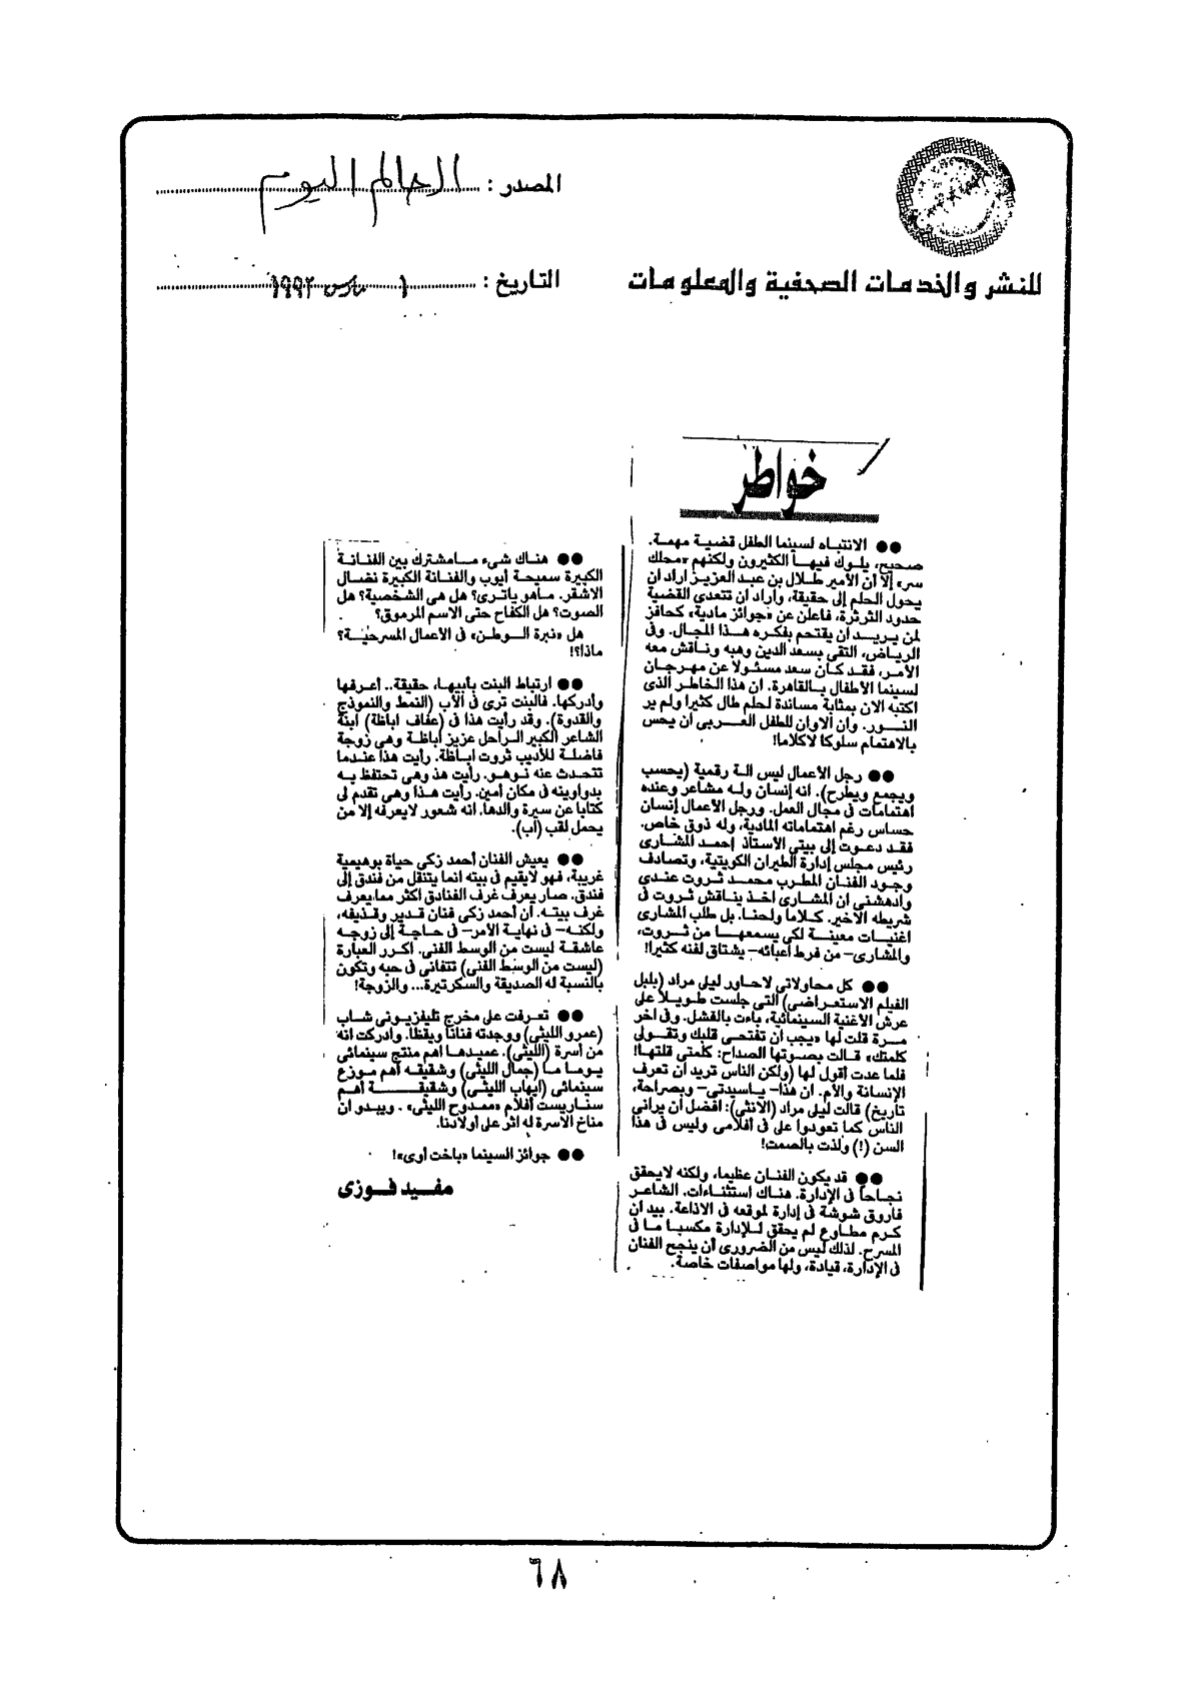 المصدر : العالم اليوم
للنشر والخدمات الصحفية والمعلومات
التاريخ : ١ مارس ١٩٩٢
خواطر
●● الانتباه لسينما الطفل قضية مهمة.
صحيح، يلوك فيها الكثيرون ولكنهم «محلك
سر» إلا أن الأمير طلال بن عبد العزيز اراد ان
يحول الحلم إلى حقيقة، واراد ان تتعدى القضية
حدود الثرثرة، فاعلن عن «جوائز مادية» كحافز
لمن يريد ان يقتحم بفكره هذا المجال. وفى
الرياض، التقى بسعد الدين وهبه وناقش معه
الأمر، فقد كان سعد مسئولا عن مهرجان
لسينما الأطفال بالقاهرة. ان هذا الخاطر الذى
اكتبه الان بمثابة مساندة لحلم طال كثيرا ولم ير
النور. وان الاوان للطفل العربى ان يحس
بالاهتمام سلوكا لاكلاما!
●● رجل الأعمال ليس الة رقمية (يحسب
ويجمع ويطرح). انه إنسان وله مشاعر وعنده
اهتمامات فى مجال العمل. ورجل الأعمال إنسان
حساس رغم اهتماماته المادية، وله ذوق خاص.
فقد دعوت إلى بيتى الأستاذ احمد المشارى
رئيس مجلس إدارة الطيران الكويتية، وتصادف
وجود الفنان المطرب محمد ثروت عندى
وادهشنى ان المشارى اخذ يناقش ثروت فى
شريطه الأخير. كلاما ولحنا. بل طلب المشارى
اغنيات معينة لكى يسمعها من ثروت،
والمشارى– من فرط أعبائه– يشتاق لفنه كثيرا!
●● كل محاولاتى لاحاور ليلى مراد (بلبل
الفيلم الاستعراضى) التى جلست طويلا على
عرش الأغنية السينمائية، باءت بالفشل. وفى اخر
مرة قلت لها «يجب ان تفتحى قلبك وتقولى
كلمتك» قالت بصوتها الصداح: كلمتى قلتها!
فلما عدت أقول لها (ولكن الناس تريد ان تعرف
الإنسانة والأم. ان هذا– ياسيدتى– وبصراحة،
تاريخ) قالت ليلى مراد (الانثى): افضل أن يرانى
الناس كما تعودوا على فى أفلامى وليس فى هذا
السن (!) ولذت بالصمت!
●● قد يكون الفنان عظيما، ولكنه لايحقق
نجاحا فى الإدارة. هناك استثناءات. الشاعر
فاروق شوشة فى إدارة لموقعه فى الاذاعة. بيد ان
كرم مطاوع لم يحقق للإدارة مكسبا ما فى
المسرح. لذلك ليس من الضرورى أن ينجح الفنان
فى الإدارة، قيادة، ولها مواصفات خاصة.
●● هناك شىء مامشترك بين الفنانة
الكبيرة سميحة أيوب والفنانة الكبيرة نضال
الاشقر. ماهو ياترى؟ هل هى الشخصية؟ هل
الصوت؟ هل الكفاح حتى الاسم المرموق؟
هل «نبرة الوطن» فى الأعمال المسرحية؟
ماذا؟!
●● ارتباط البنت بأبيها، حقيقة.. أعرفها
وأدركها. فالبنت ترى فى الأب (النمط والنموذج
والقدوة). وقد رأيت هذا فى (عفاف اباظة) ابنة
الشاعر الكبير الراحل عزيز أباظة وهى زوجة
فاضلة للأديب ثروت اباظة. رأيت هذا عندما
تتحدث عنه نوهو. رأيت هذ وهى تحتفظ به
بدواوينه فى مكان أمين. رأيت هذا وهى تقدم لى
كتابا عن سيرة والدها. انه شعور لايعرفه إلا من
يحمل لقب (أب).
●● يعيش الفنان أحمد زكى حياة بوهيمية
غريبة، فهو لايقيم فى بيته انما يتنقل من فندق إلى
فندق. صار يعرف غرف الفنادق اكثر ممايعرف
غرف بيته. أن أحمد زكى فنان قدير وقذيفه،
ولكنه– فى نهاية الامر– فى حاجة إلى زوجه
عاشقة ليست من الوسط الفنى. اكرر العبارة
(ليست من الوسط الفنى) تتفانى فى حبه وتكون
بالنسبة له الصديقة والسكرتيرة... والزوجة!
●● تعرفت على مخرج تليفزيونى شاب
(عمرو الليثى) ووجدته فنانا ويقظا. وادركت انه
من أسرة (الليثى). عميدها اهم منتج سينمائى
يوما ما (جمال الليثى) وشقيقه أهم موزع
سينمائى (ايهاب الليثى) وشقيقة أهم
سناريست أفلام «ممدوح الليثى» . ويبدو ان
مناخ الاسرة له اثر على أولادنا.
●● جوائز السينما «باخت اوى»!
مفيد فوزى
٦٨